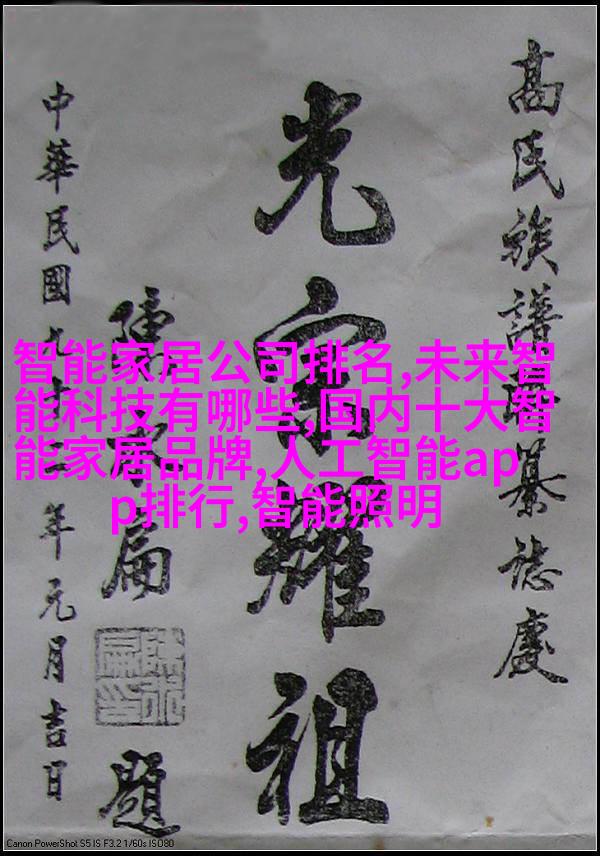 高氏族譜纂誌慶
光宗耀祖
陳水扁題
中華民國九十年元月吉日
智能家居公司排名,未来智
能科技有哪些,国内十大智
能家居品牌,人工智能ap
p排行,智能照明
Canon PowerShot S5 IS F3.2 1/60s ISO80